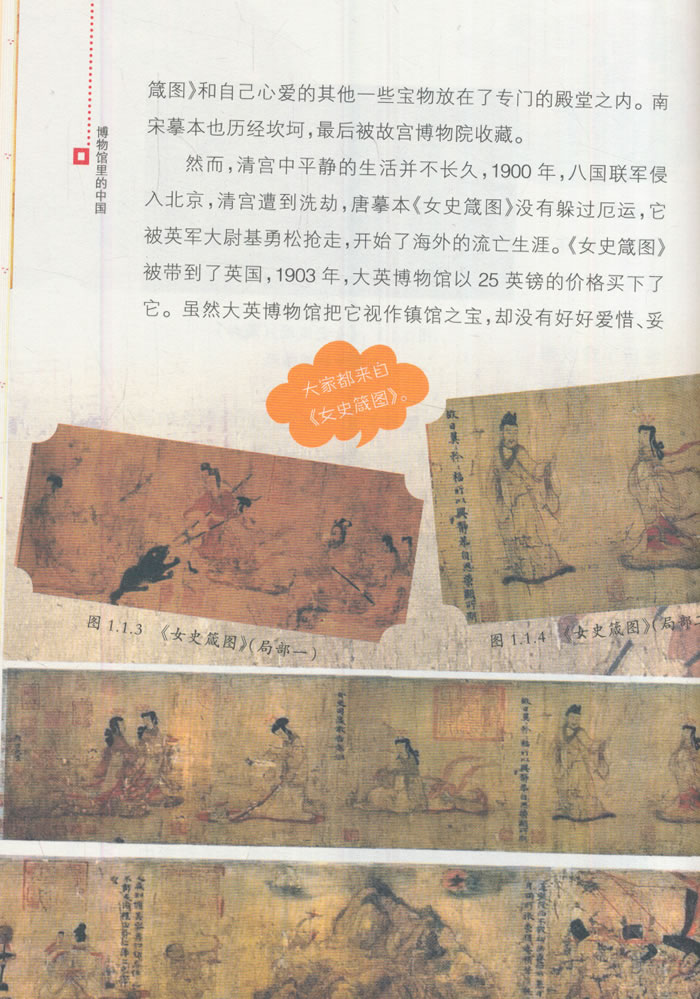 博物馆里的中国
箴图》和自己心爱的其他一些宝物放在了专门的殿堂之内。南
宋摹本也历经坎坷，最后被故宫博物院收藏。
然而，清宫中平静的生活并不长久，1900 年，八国联军侵
入北京，清宫遭到洗劫，唐摹本《女史箴图》没有躲过厄运，它
被英军大尉基勇松抢走，开始了海外的流亡生涯。《女史箴图》
被带到了英国，1903 年，大英博物馆以 25 英镑的价格买下了
它。虽然大英博物馆把它视作镇馆之宝，却没有好好爱惜、妥
大家都来自
《女史箴图》。
图 1.1.3 《女史箴图》(局部一)
图 1.1.4 《女史箴图》(局部二